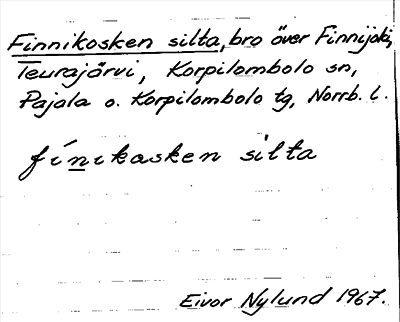 Finnikosken silta, bro över Finnijoki,
Teurajärvi, Korpilombolo sn,
Pajala o. Korpilombolo tg, Norrb. l.
fínikasken silta
Eivor Nylund 1967.